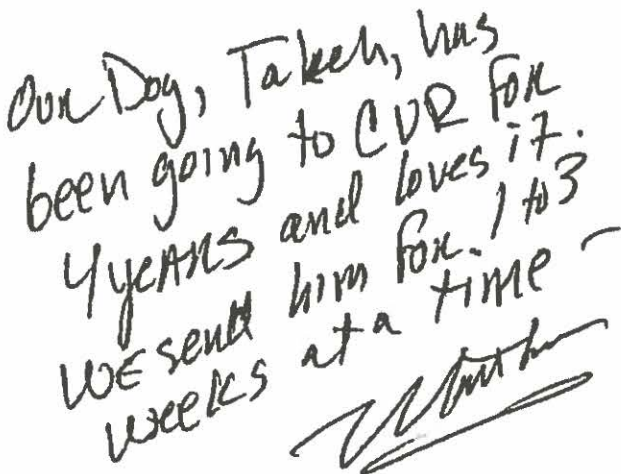 Our Dog, Takeh, has
been going to CVR for
4 years and loves it.
WE send him for 1 to 3
weeks at a time -